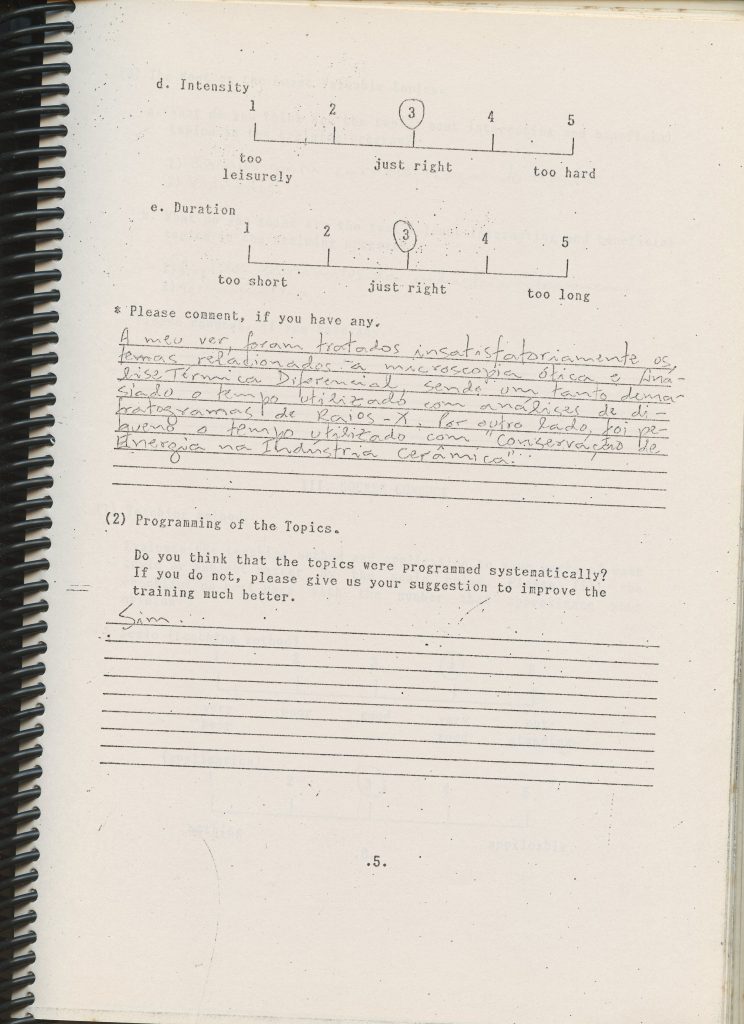 d. Intensity
1 2 3 4 5
too leisurely just right too hard
e. Duration
1 2 3 4 5
too short just right too long
* Please comment, if you have any.
A meu ver, foram tratados insatisfatoriamente os
temas relacionados a microscopia ótica e Aná-
lise Térmica Diferencial, sendo um tanto dema-
siado o tempo utilizado com análises de di-
fratogramas de Raios-X. Por outro lado, foi pe-
queno o tempo utilizado com "Conservação de
Energia na Indústria Cerâmica".
(2) Programming of the Topics.
Do you think that the topics were programmed systematically?
If you do not, please give us your suggestion to improve the
training much better.
Sim.
.5.